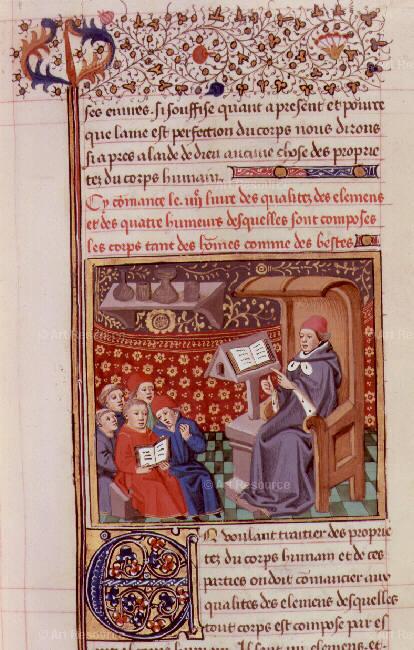 ses euures. Si souffise quant a present et pource
que lame est perfection du corps nous dirons
si apres a laide de dieu aucune chose des proprie
tez du corps humain.
Cy cōmance le livre des qualitez des elemens
et des quatre humeurs desquelles sont composes
les corps tant des hōmes comme des bestes
En voulant traitier des proprie
tez du corps humain et de ces
parties on doit cōmancier aux
qualites des elemens desquelles
tout corps est compose par es
© Art Resource
© Art Resource
© Art Resource
© Art Resource
© Art Resource